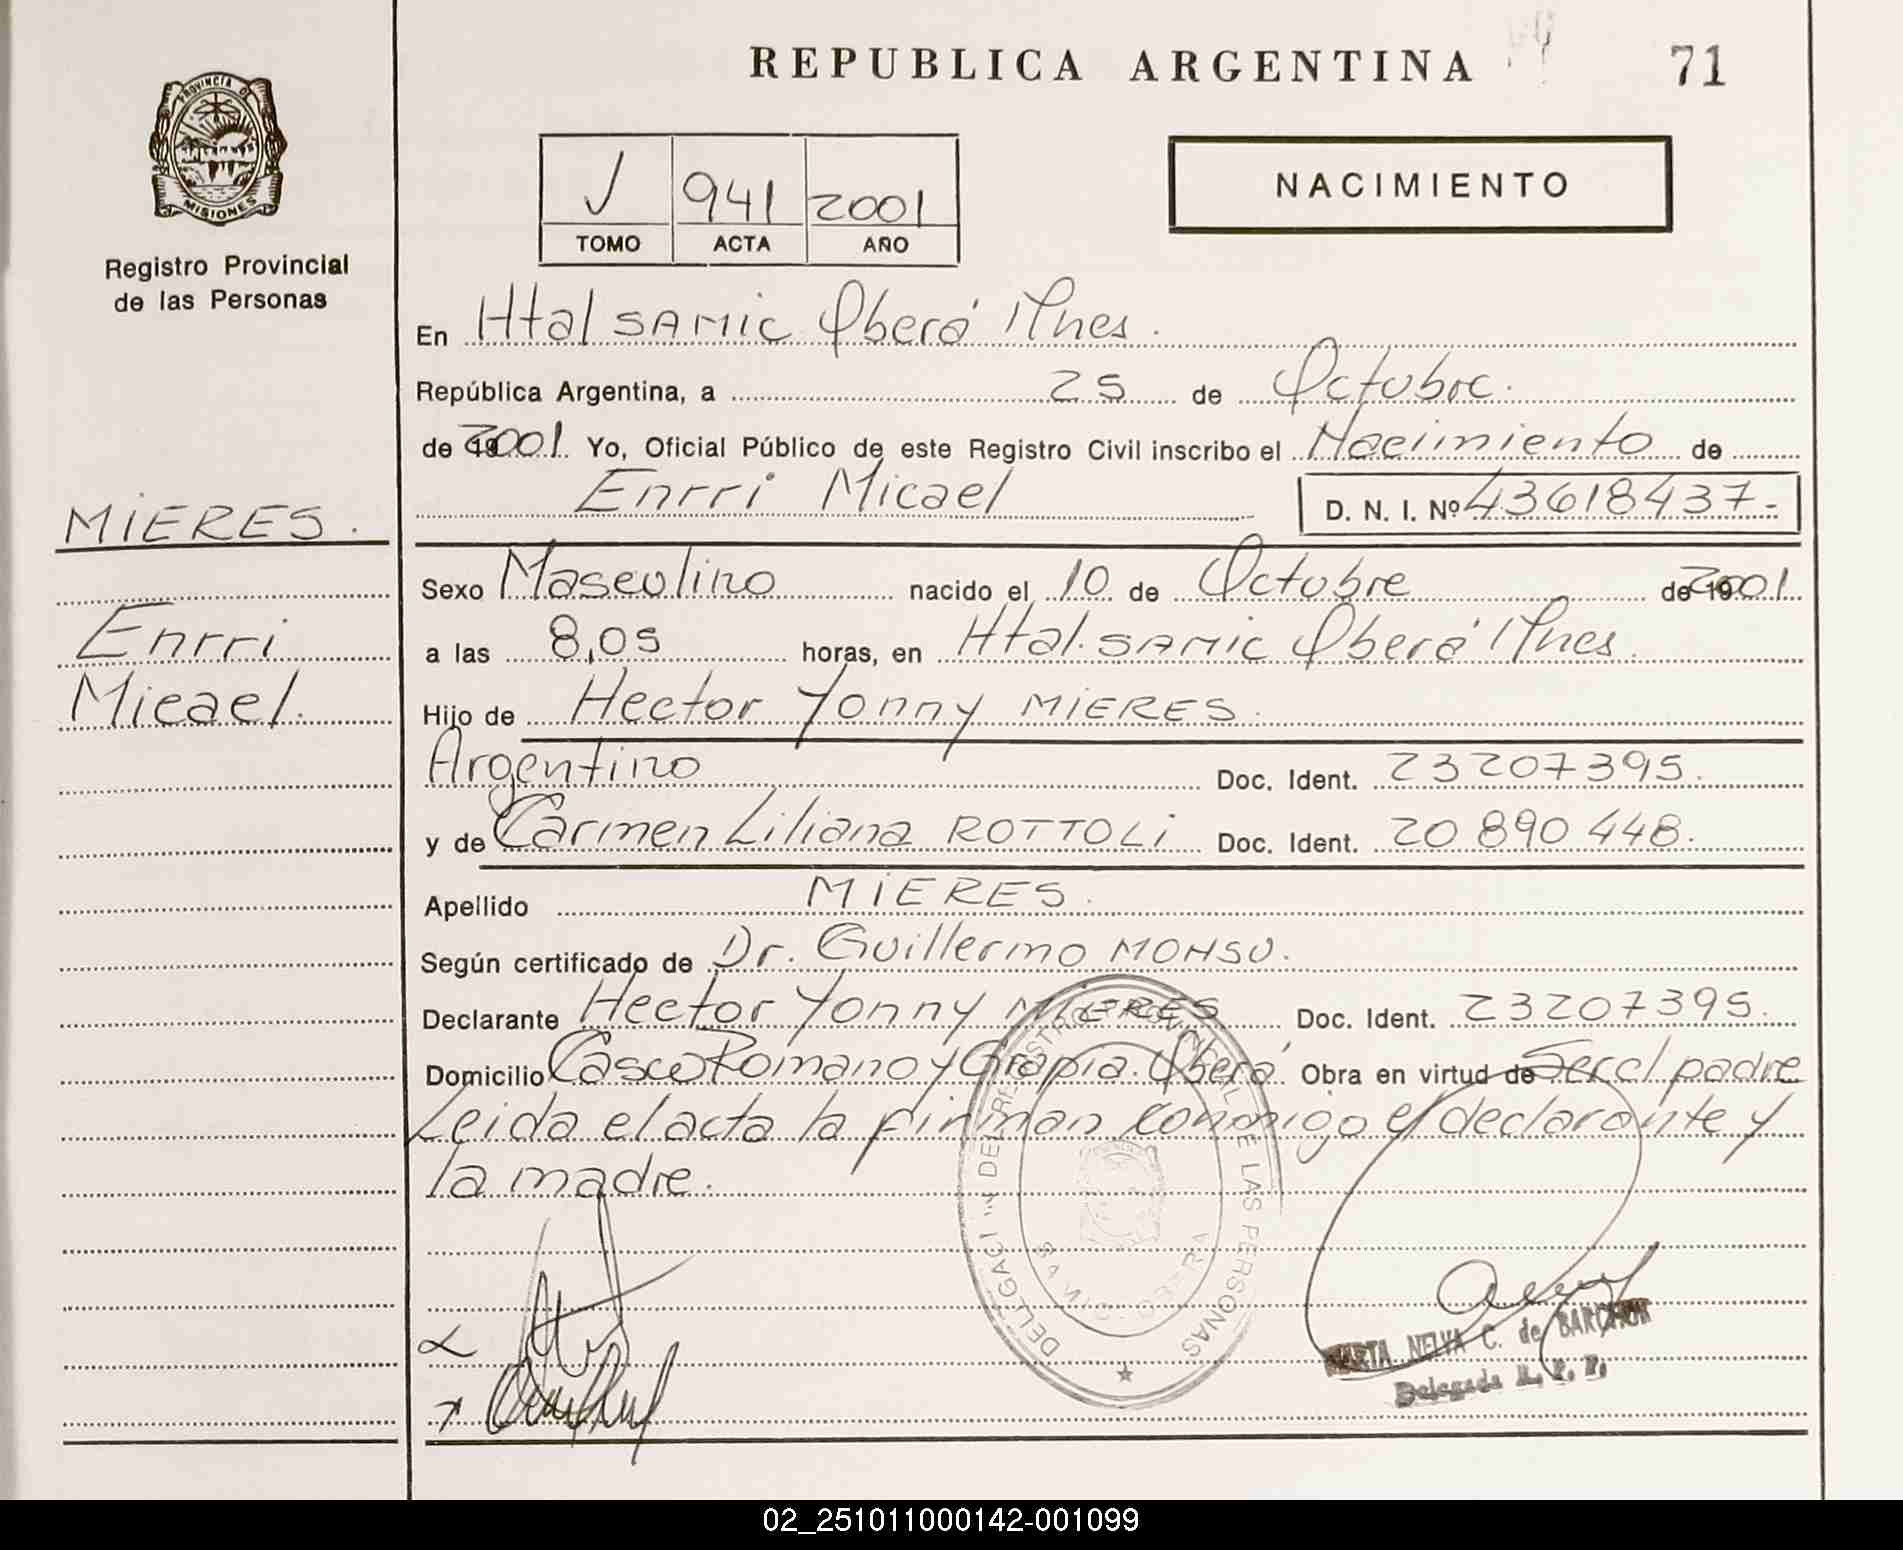 REPUBLICA ARGENTINA
71
PROVINCIA DE
MISIONES
Registro Provincial
de las Personas
V 941 2001
TOMO ACTA AÑO
NACIMIENTO
En Htal SAMIC Oberá Mnes.
República Argentina, a 25 de Octubre.
de 2001. Yo, Oficial Público de este Registro Civil inscribo el Nacimiento de
Enrri Micael D. N. I. Nº 43618437-
MIERES.
Enrri
Micael.
Sexo Masculino nacido el 10 de Octubre de 2001.
a las 8,05 horas, en Htal. SAMIC Oberá Mnes.
Hijo de Hector Yonny MIERES.
Argentino Doc. Ident. 23207395.
y de Carmen Liliana ROTTOLI Doc. Ident. 20 890 448.
Apellido MIERES.
Según certificado de Dr. Guillermo MONSU.
Declarante Hector Yonny MIERES Doc. Ident. 23207395.
Domicilio Casco Romano y Grapia. Oberá Obra en virtud de Ser el padre
Leida el acta la firman conmigo el declarante y
la madre.
REGISTRO PROVINCIAL DE LAS PERSONAS
MARTA NELVA C. de
Delegada R. P. P.
02_251011000142-001099